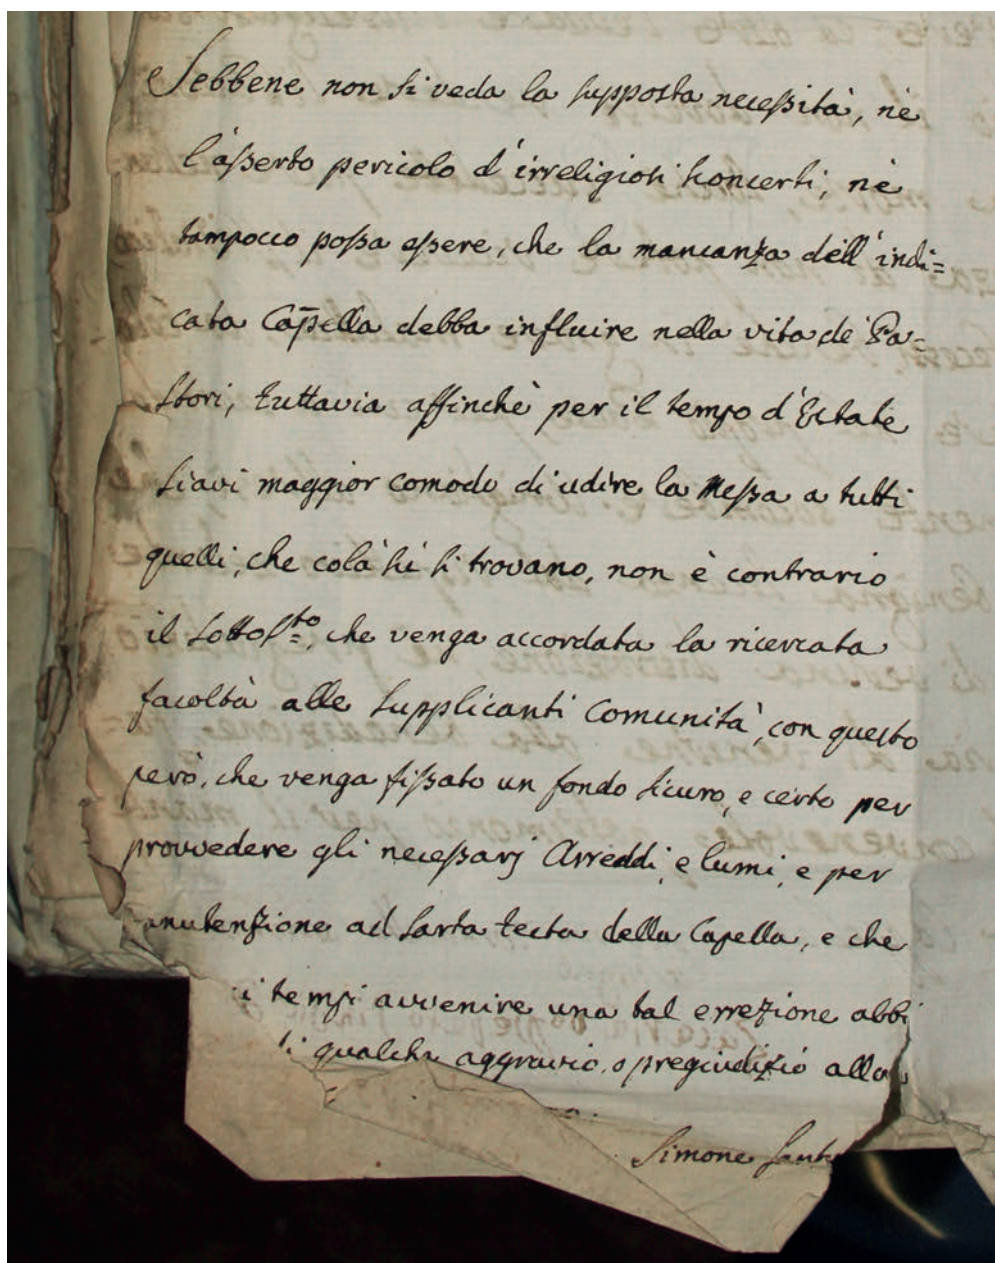 Sebbene non si veda la supposta necessità, nè
l'asserto pericolo d'irreligiosi sconcerti, nè
tampocco possa essere, che la mancanza dell'indi=
cata Capella debba influire nella vita de' Pa=
stori, tuttavia affinchè per il tempo d'Estate
siavi maggior comodo di udire la Messa a tutti
quelli, che colà sù si trovano, non è contrario
il sottos.to, che venga accordata la ricercata
facoltà alle supplicanti Comunità, con questo
però, che venga fissato un fondo sicuro, e certo per
provvedere gli necessarj Arreddi, e lumi, e per
anutenzione ad sarta tecta della Capella, e che
i tempi avvenire una tal errezione abbi
di qualche aggravio, o pregiudizio alla
Simone